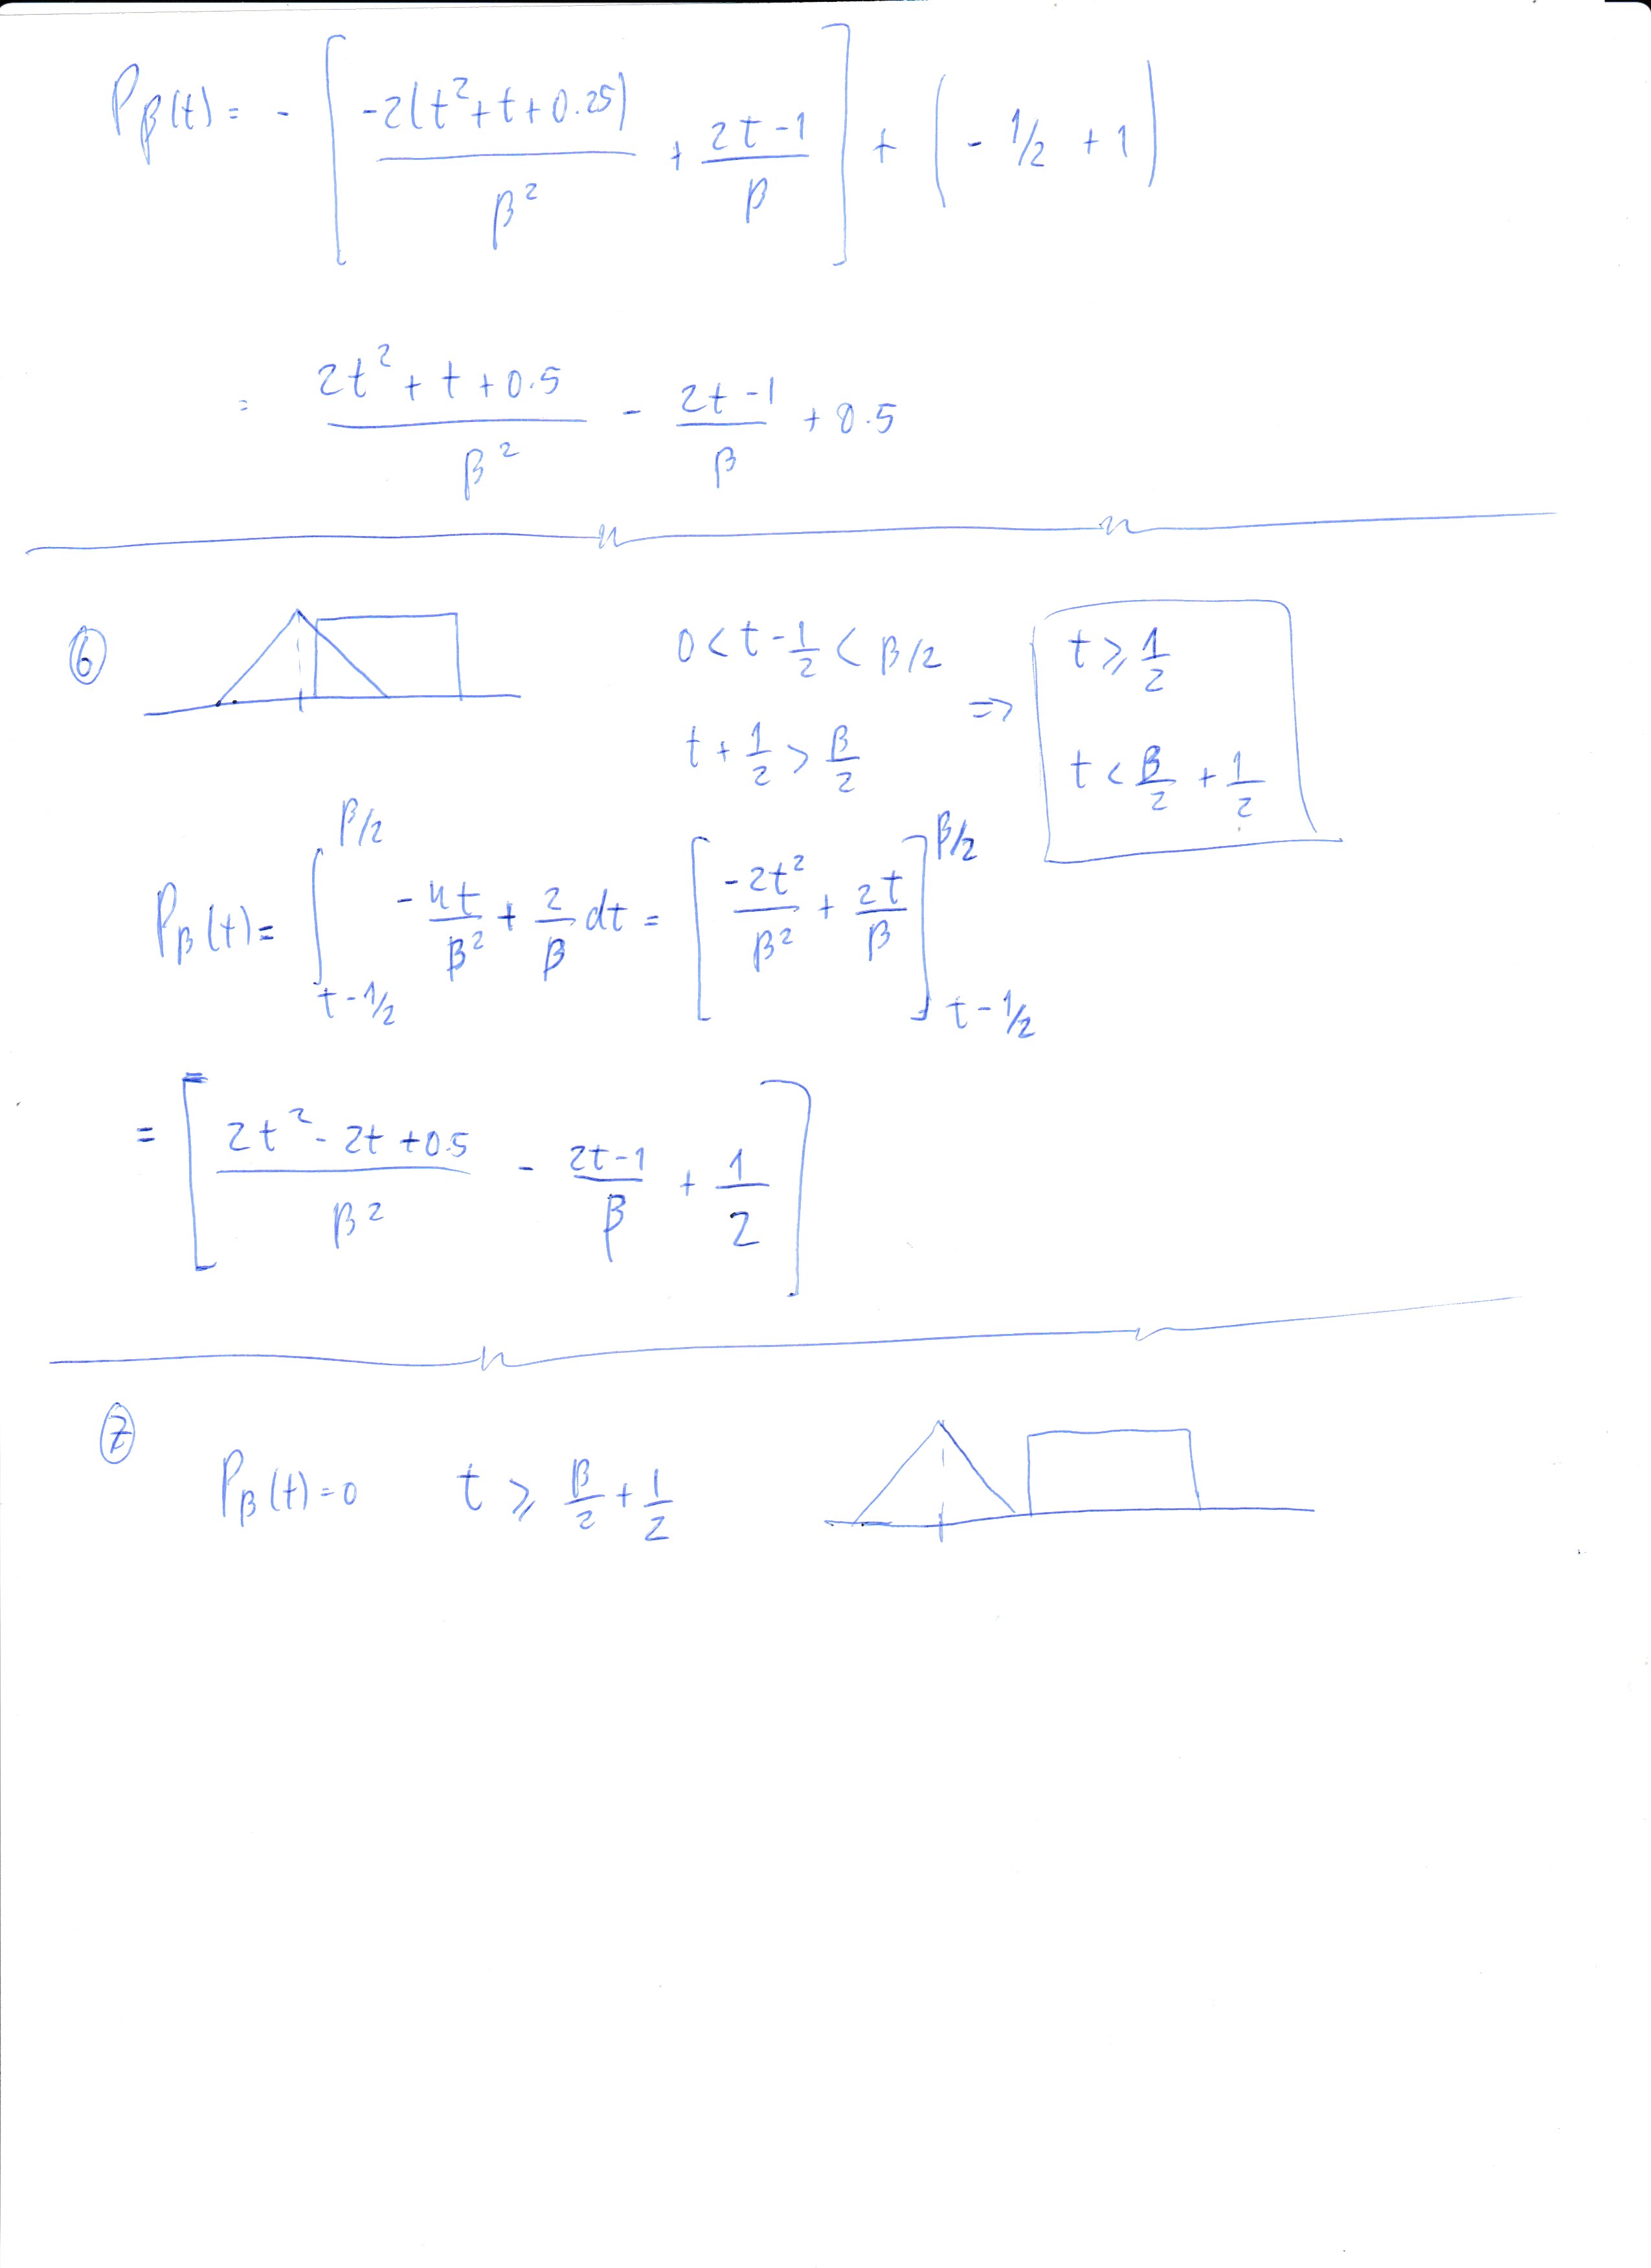 P_β(t) = - [ -2(t²+t+0.25) / β² + (2t-1) / β ] + ( - 1/2 + 1 )
= (2t² + t + 0.5) / β² - (2t-1) / β + 0.5
⑥ 0 < t - 1/2 < β/2 ⇒ t ⩾ 1/2
t + 1/2 > β/2 t < β/2 + 1/2
P_β(t) = ∫_{t-1/2}^{β/2} - 4t/β² + 2/β dt = [ -2t²/β² + 2t/β ]_{t-1/2}^{β/2}
= [ (2t² - 2t + 0.5) / β² - (2t-1) / β + 1/2 ]
⑦ P_β(t) = 0 t ⩾ β/2 + 1/2